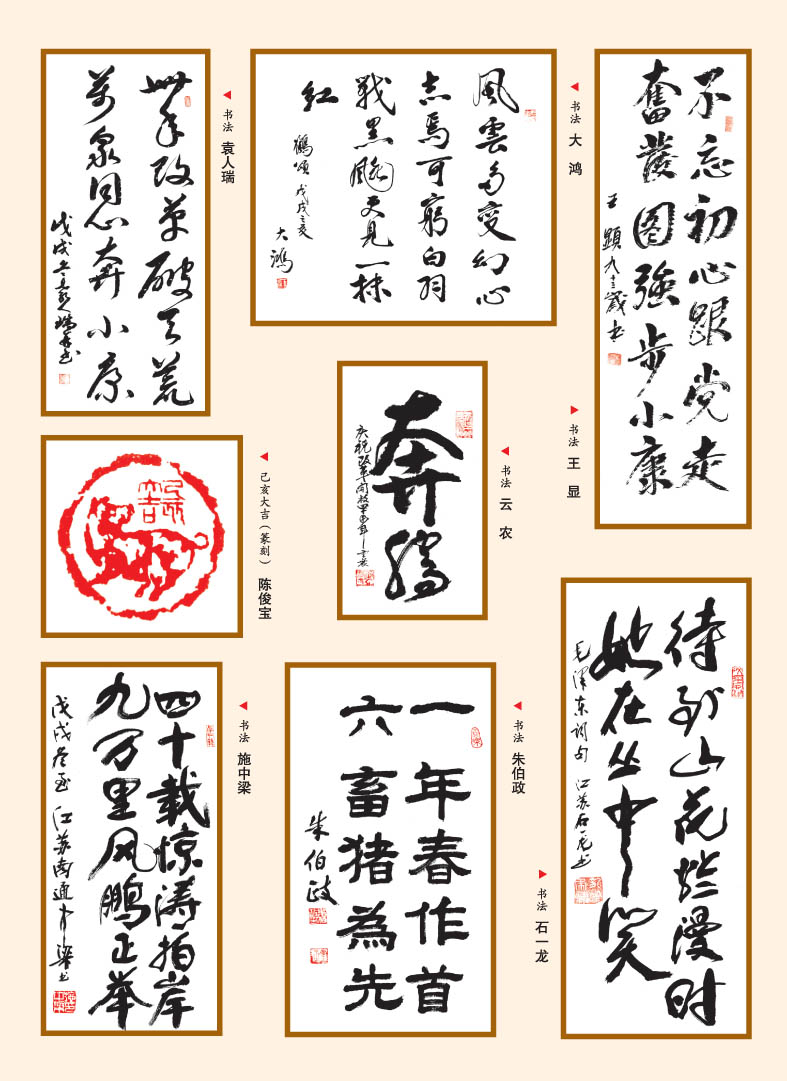 卅年改革破天荒
万众同心奔小康
书法 袁人瑞
风雲多变幻心
志焉可穷白羽
战黑飚又见一抹
红
鹤颂 戊戌之亥
大鸿
书法 大鸿
不忘初心跟党走
奮發图強步小康
王顕九十三歲书
书法 王显
奔腾
庆祝改革开放四十周年
书法 云农
己亥大吉
己亥大吉(篆刻) 陈俊宝
四十载惊涛拍岸
九万里风鹏正举
戊戌冬至 江苏南通中梁书
书法 施中梁
一年春作首
六畜猪為先
朱伯政
书法 朱伯政
待到山花烂漫时
她在丛中笑
毛泽东词句 江苏石一龙书
书法 石一龙